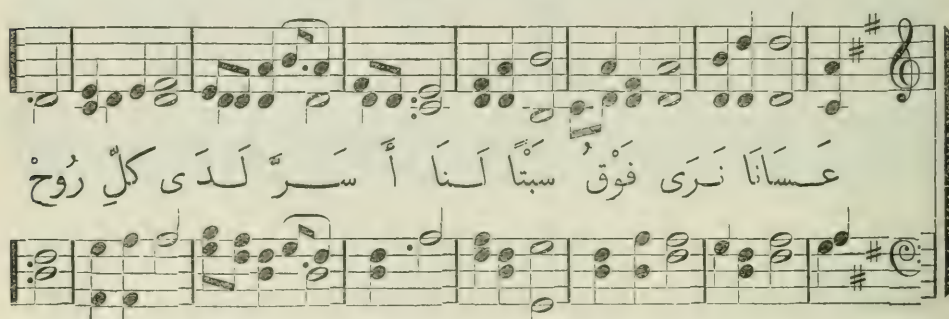 عَـسانَا نَـرَى فَوْقُ سَبْتًا لَـنَا أَ سَـرَّ لَـدَ ى كلِّ رُوحْ